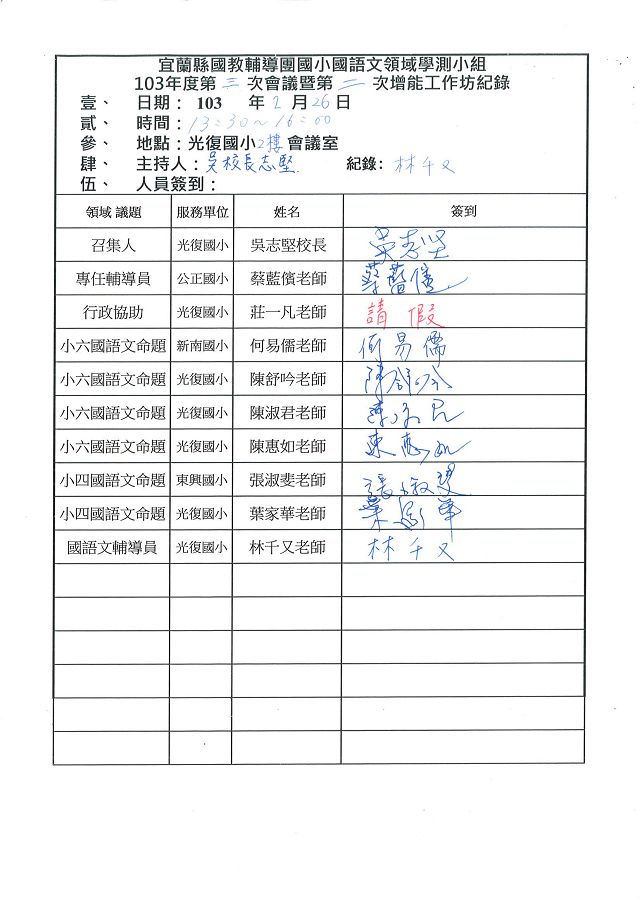 宜蘭縣國教輔導團國小國語文領域學測小組
103年度第三次會議暨第二次增能工作坊紀錄
壹、 日期：103 年2月26日
貳、 時間：13：30～16：00
參、 地點：光復國小2樓會議室
肆、 主持人：吳校長志堅 紀錄：林千又
伍、 人員簽到：
領域 議題 服務單位 姓名 簽到
召集人 光復國小 吳志堅校長 吳志堅
專任輔導員 公正國小 蔡藍儐老師 蔡藍儐
行政協助 光復國小 莊一凡老師 請假
小六國語文命題 新南國小 何易儒老師 何易儒
小六國語文命題 光復國小 陳舒吟老師 陳舒吟
小六國語文命題 光復國小 陳淑君老師 陳淑君
小六國語文命題 光復國小 陳惠如老師 陳惠如
小四國語文命題 東興國小 張淑斐老師 張淑斐
小四國語文命題 光復國小 葉家華老師 葉家華
國語文輔導員 光復國小 林千又老師 林千又